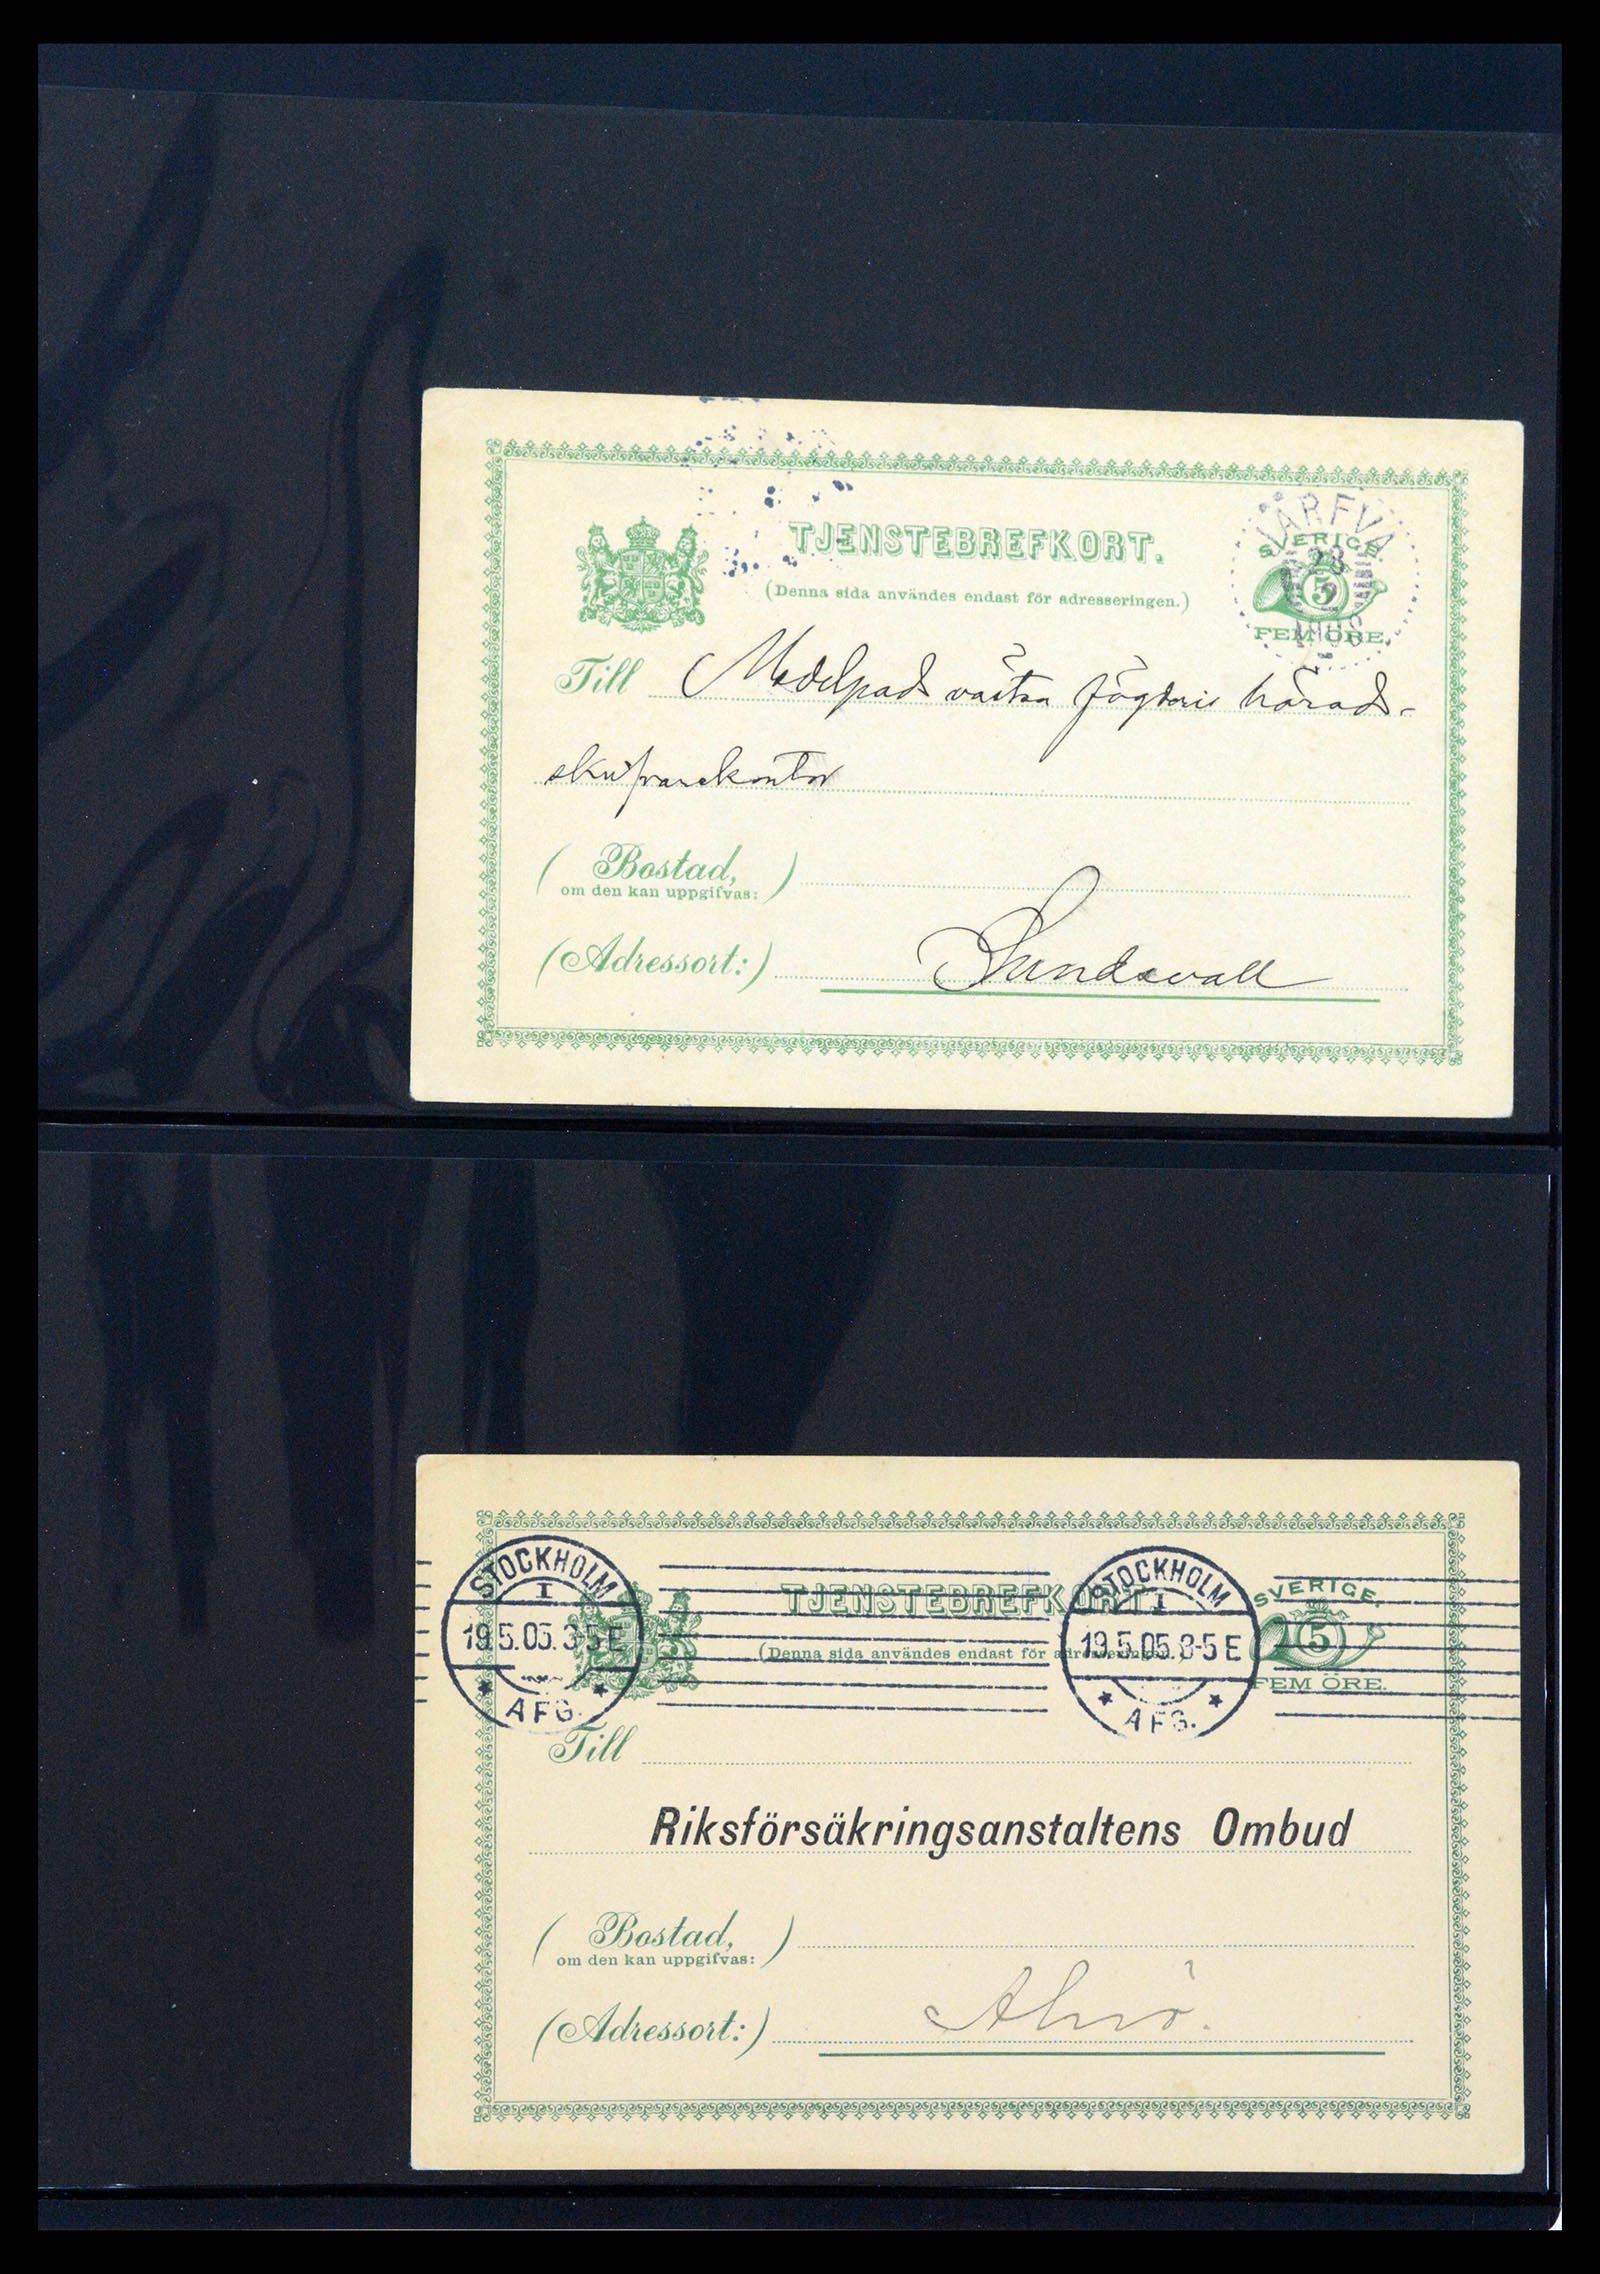 TJENSTEBREFKORT.
(Denna sida användes endast för adresseringen.)
JÄRFVA
SVERIGE.
28
5
FEM ÖRE.
Till Medelpads västra fögderis härads-
skrifvarekontor
(Bostad,
om den kan uppgifvas:)
(Adressort:) Sundsvall
STOCKHOLM
I
19.5.05.3-5E
AFG.
TJENSTEBREFKORT.
(Denna sida användes endast för adresseringen.)
STOCKHOLM
I
19.5.05.3-5E
AFG.
SVERIGE.
5
FEM ÖRE.
Till
Riksförsäkringsanstaltens Ombud
(Bostad,
om den kan uppgifvas:)
(Adressort:) Alnö.